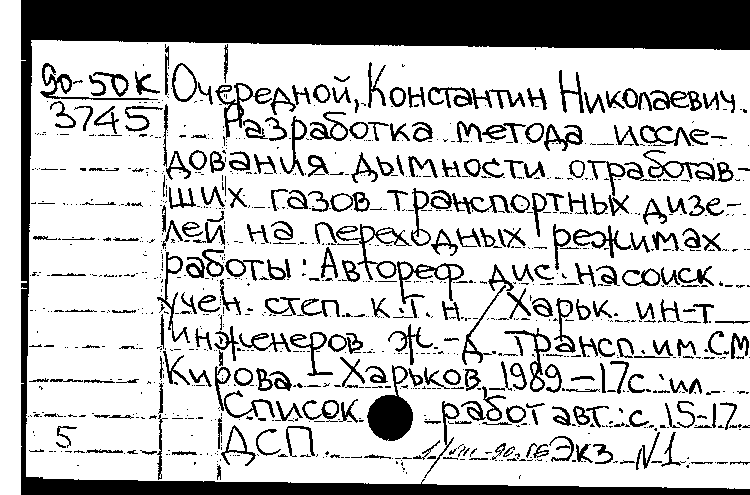 90-50К
3745
Очередной, Константин Николаевич.
Разработка метода иссле-
дования дымности отработав-
ших газов транспортных дизе-
лей на переходных режимах
работы: Автореф дис. на соиск.
учен. степ. к.т.н / Харьк. ин-т
инженеров ж.-д трансп. им. С.М
Кирова. – Харьков, 1989 – 17с.: ил
Список работ авт.: с. 15-17.
5
ДСП. Экз N1.